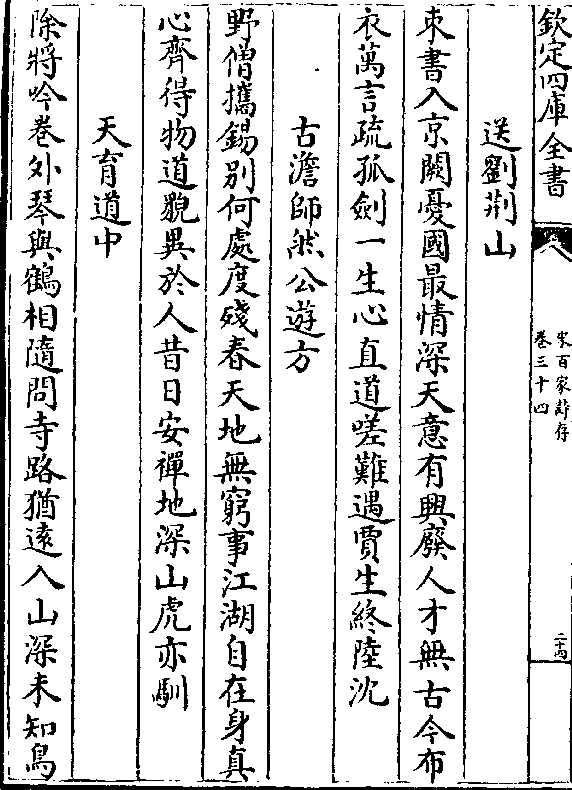 欽定四庫全書
宋百家詩存
卷三十四
二十四
送劉荆山
束書入京闕憂國最情深天意有興廢人才無古今布
衣萬言疏孤劍一生心直道嗟難遇賈生終陸沈
古澹師然公遊方
野僧攜錫別何處度殘春天地無窮事江湖自在身真
心齊得物道貌異於人昔日安禪地深山虎亦馴
天育道中
除將吟巻外琴與鶴相隨問寺路猶遠入山深未知鳥